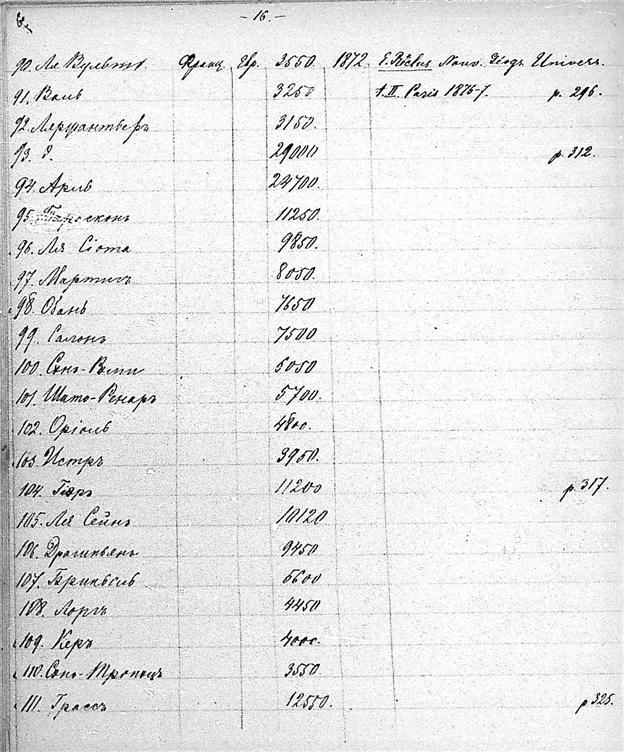 - 16. -
90. Ля Вульт. Франц. Евр. 3550. 1872. E. Reclus Nouv. Géogr. Univers.
91. Валь 3250 t. II. Paris 1876-7. p. 296.
92. Ляржантьеръ 3150.
93. 29000 p. 312.
94. Арль 24700.
95. Тарасконъ 11250.
96. Ля Сіота 9850.
97. Мартигъ 8050.
98. Обань 7650
99. Салонъ 7500
100. Сенъ-Реми 5050
101. Шато-Ренаръ 5700.
102. Оріоль 4800.
103. Истръ 3950.
104. Гіеръ 11200 p. 317.
105. Ля Сейнъ 10120
106. Драгиньянъ 9450
107. Бриньоль 5600
108. Лоргъ 4450
109. Керъ 4000.
110. Сенъ-Тропецъ 3550
111. Грассъ 12550. p. 325.